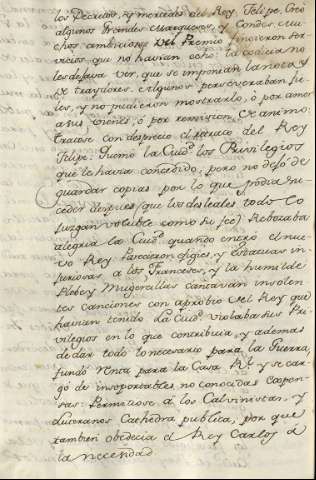 los Decretos, y mercedes del Rey Felipe. Creó
algunos Grandes, Marqueses, y Condes, mu-
chos ambiciosos del Premio fingieron ser-
vicios que no havian echo: la codicia no
les dejava ver, que se imponian la nota
de traydores. Algunos perseveraban fie-
les, y no pudieron mostrarlo, ó por amor
a sus vienes, ó por remision de animo:
tratose con desprecio el retrato del Rey
Felipe. Quemó la Ciudᵈ los Privilegios
que le havia concedido; pero no dejó de
guardar copias por lo que podia su-
ceder despues (que los desleales todo lo
juzgan voluble como su fee) Rebozaba
alegria la Ciudᵈ quando entró el nue-
vo Rey. Parecieron efigies, y Estatuas in-
juriosas a los Franceses, y la humilde
Plebe y Mugercillas cantavan insolen-
tes canciones con aprobio del Rey que
havian tenido. La Ciudᵈ violaba sus Pri-
vilegios en lo que contribuia, y ademas
de dar todo lo necesario para la Guerra,
fundó Renta para la Casa Rˡ y se car-
gó de insoportables, no conocidas expen-
sas. Permitiose a los Calvinistas, y
Luteranos Cathedra publica, por que
tambien obedecia el Rey Carlos á
la necesidad